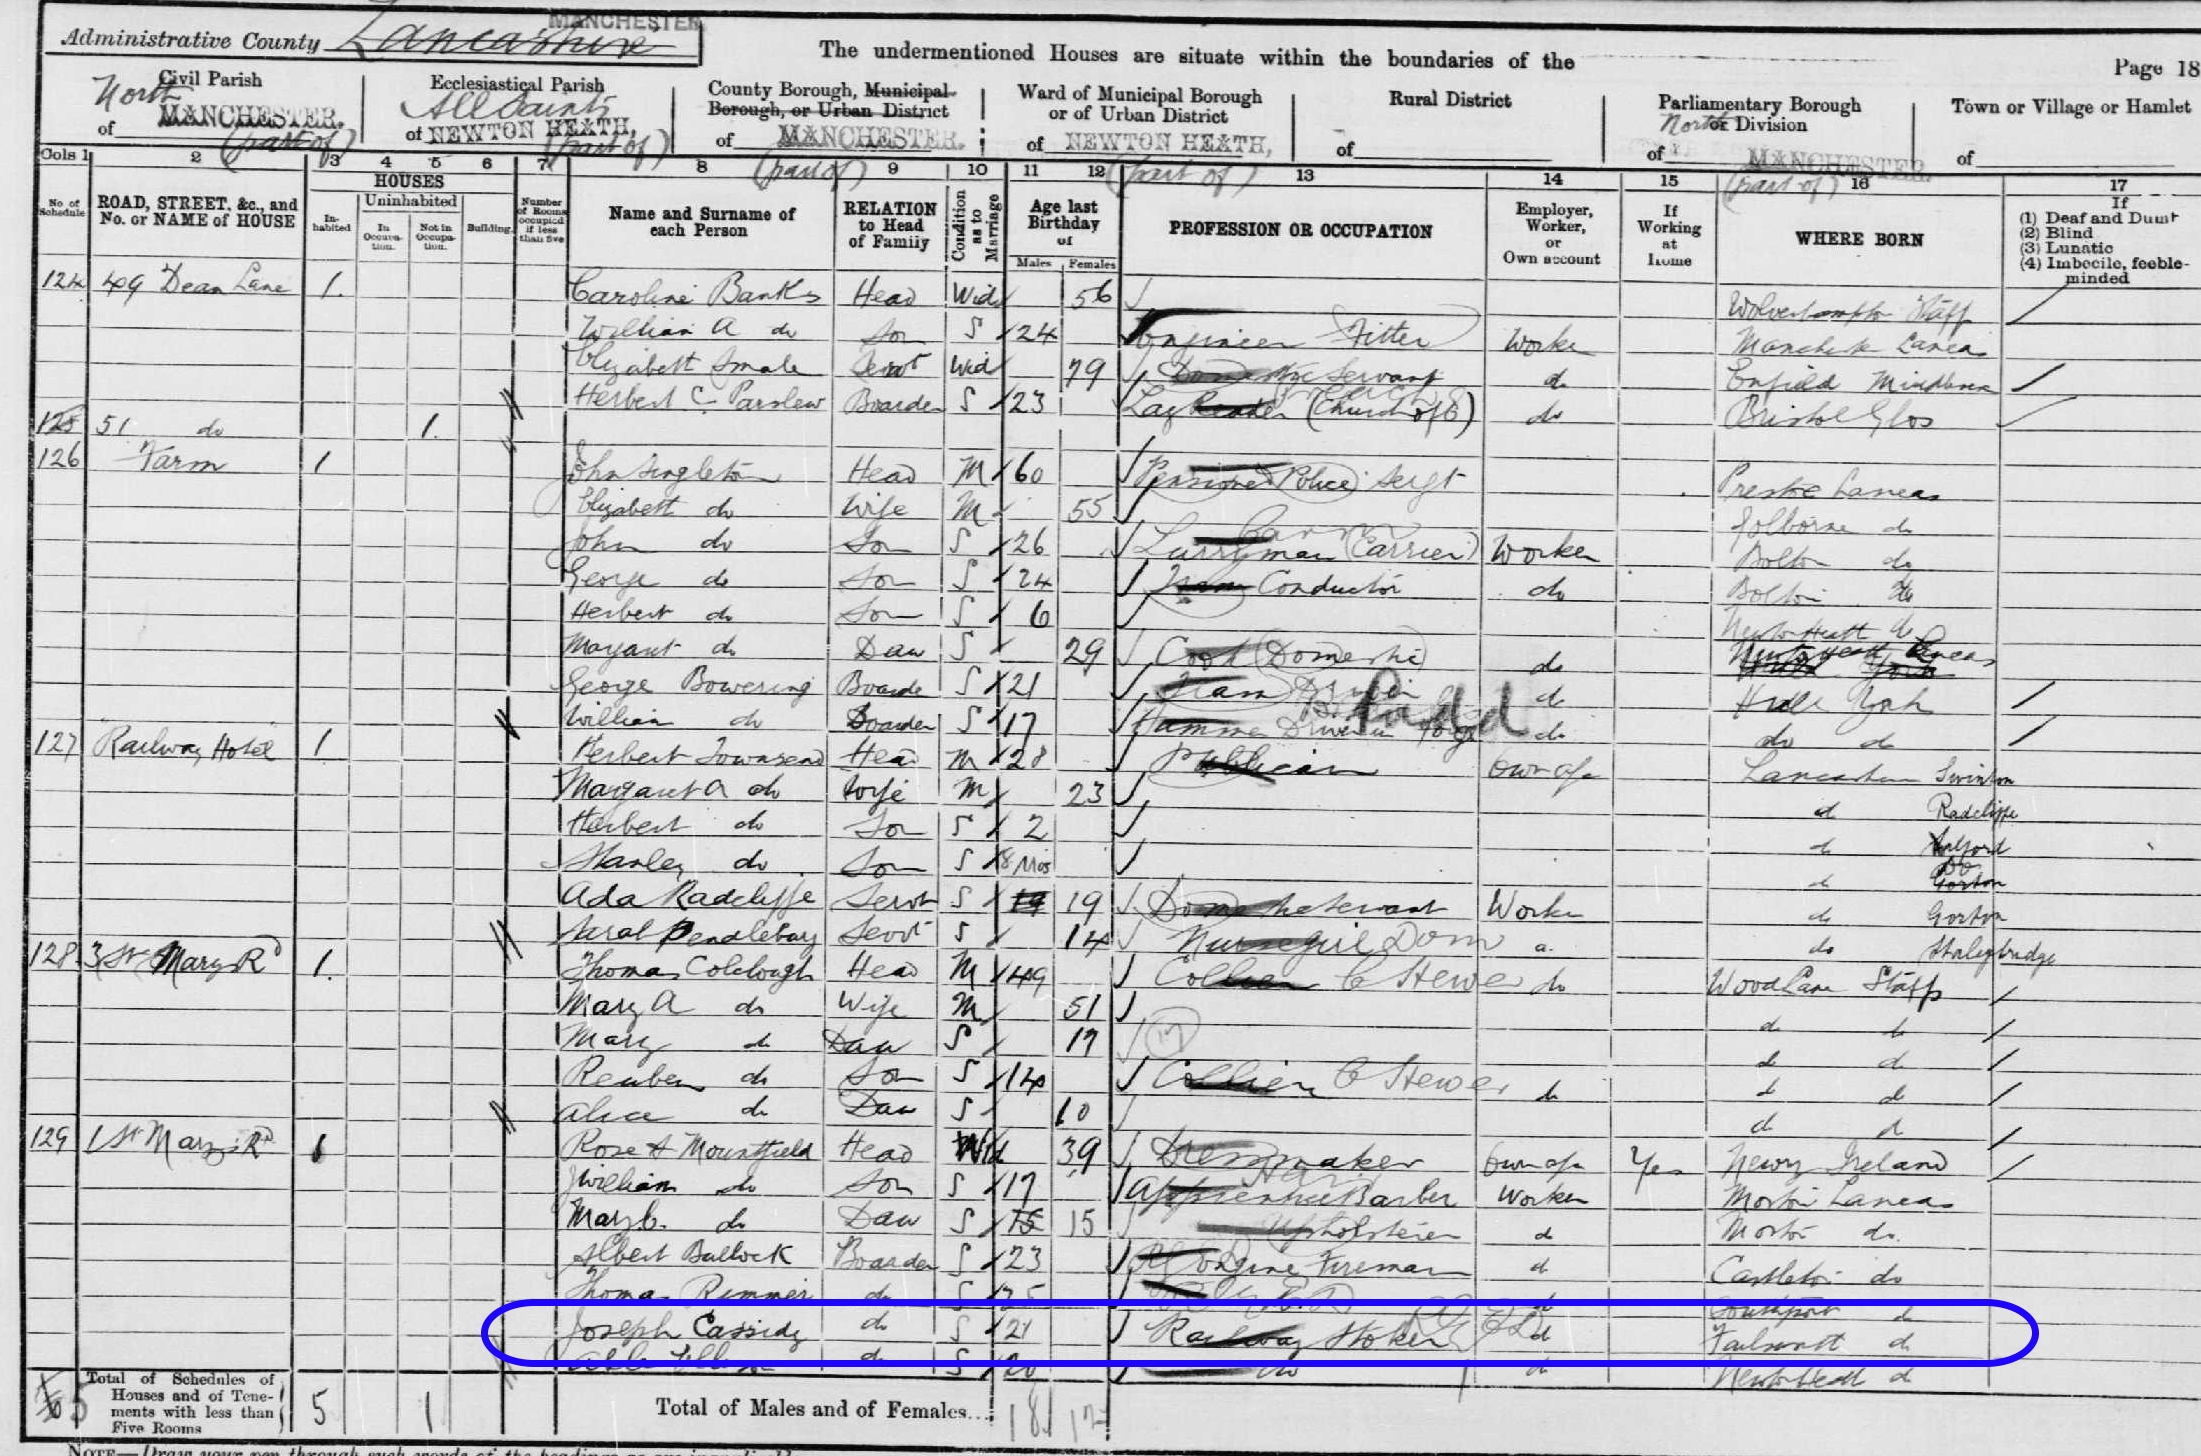 MANCHESTER
Administrative County Lancashire
The undermentioned Houses are situate within the boundaries of the
Page 18
Civil Parish
North
of MANCHESTER.
(part of)
Ecclesiastical Parish
All Saints
of NEWTON HEATH,
(part of)
County Borough, Municipal
Borough, or Urban District
of MANCHESTER.
(part of)
Ward of Municipal Borough
or of Urban District
of NEWTON HEATH,
(part of)
Rural District
of
Parliamentary Borough
North or Division
of MANCHESTER.
(part of)
Town or Village or Hamlet
of
Cols 1 2 3 4 5 6 7 8 9 10 11 12 13 14 15 16 17
No. of Schedule
ROAD, STREET, &c., and No. or NAME of HOUSE
HOUSES
Inhabited
Uninhabited
In Occupation.
Not in Occupation.
Building.
Number of Rooms occupied if less than five
Name and Surname of each Person
RELATION to Head of Family
Condition as to Marriage
Age last Birthday of
Males Females
PROFESSION OR OCCUPATION
Employer, Worker, or Own account
If Working at Home
WHERE BORN
If
(1) Deaf and Dumb
(2) Blind
(3) Lunatic
(4) Imbecile, feeble-minded
124 49 Dean Lane 1. Caroline Banks Head Wid 56 Wolverhampton Staff
William A do Son S 24 Engineer Fitter Worker Manchester Lancas
Elizabeth Smale Servt Wid 79 Domestic Servant do Enfield
Herbert C Parslew Boarder S 23 Lay Reader (Church of E) do Bristol Glos
125 51 do 1.
126 Farm 1 John Singleton Head M 60 Pensioner Police Sergt Lancas
Elizabeth do Wife M 55 do
John do Son S 26 Lurryman (Carrier) Worker Bolton do
George do Son S 24 Tram Conductor do Bolton do
Herbert do Son S 6 Newton Heath do
Margaret do Daw S 29 Cook (Domestic) do Newton Heath Lancas
George Bowering Boarder S 21 Tram Driver do Hull York
William do Boarder S 17 Hammer Driver in Forge do do do
127 Railway Hotel 1 Herbert Townsend Head M 28 Publican Own a/c Lancashire Swinton
Margaret A do Wife M 23 do Radcliffe
Herbert do Son S 2 do Salford
Stanley do Son S 8 Mos do Gorton
Ada Radcliffe Servt S 19 19 Domestic Servant Worker do Gorton
Sarah Pendlebury Servt S 14 Nursegirl Dom do Stalybridge
128 3 St Mary's Rd 1. Thomas Colclough Head M 49 Collier C Hewer do Wood Lane Staffs
Mary A do Wife M 51 do do
Mary do Daw S 17 do do
Reuben do Son S 14 Collier C Hewer do do do
Alice do Daw S 10 do do
129 1 St Mary's Rd 1 Rose A Mountfield Head Wid 39 Dressmaker Own a/c Yes Newry Ireland
William do Son S 17 Apprentice Barber Worker Lancas
Mary do Daw S 15 15 Upholsterer do do
Albert Bullock Boarder S 23 Engine Fireman do Castleton do
Thomas Rimmer do S 25 do Southport do
Joseph Cassidy do S 21 Railway Stoker do Failsworth do
do S 20 do do Newton Heath do
Total of Schedules of Houses and of Tenements with less than Five Rooms 5 1
Total of Males and of Females... 18 12